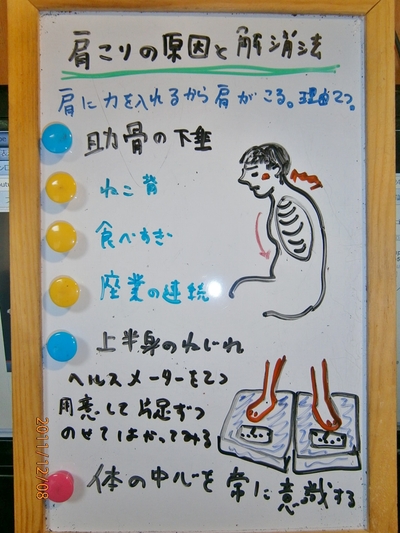 肩こりの原因と解消法
肩に力を入れるから肩がこる。理由2つ。
助骨の下垂
ねこ背
食べすぎ
座業の連続
上半身のねじれ
ヘルスメーターを2つ
用意して片足ずつ
のせてはかってみる
体の中心を常に意識する
2011/12/08